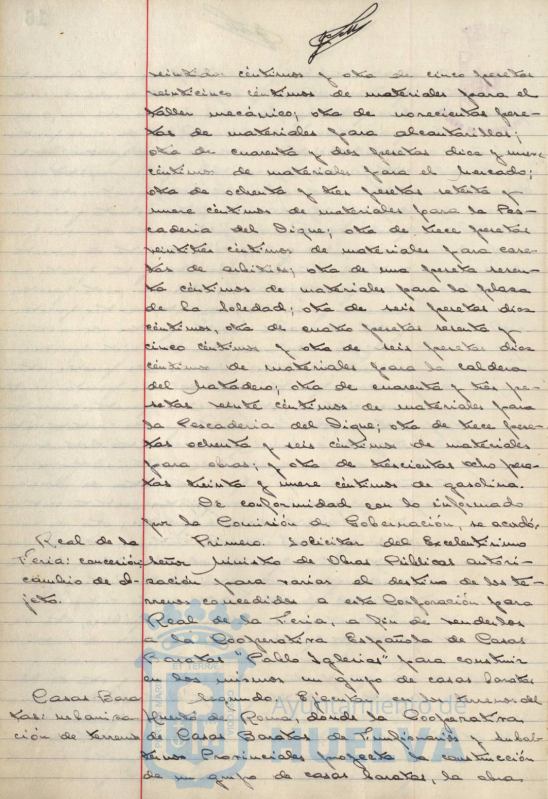 veintidos céntimos y otra de cinco pesetas
veinticinco céntimos de materiales para el
taller mecánico; otra de novecientas pese-
tas de materiales para alcantarillas;
otra de cuarenta y dos pesetas diez y nueve
céntimos de materiales para el Mercado;
otra de ochenta y tres pesetas setenta y
nueve céntimos de materiales para la Pes-
cadería del Dique; otra de trece pesetas
veintitres céntimos de materiales para case-
tas de arbitrios; otra de una peseta seten-
ta céntimos de materiales para la plaza
de la Soledad; otra de seis pesetas diez
céntimos, otra de cuatro pesetas sesenta y
cinco céntimos y otra de seis pesetas diez
céntimos de materiales para la caldera
del Matadero; otra de cuarenta y tres pe-
setas veinte céntimos de materiales para
la Pescadería del Dique; otra de trece pese-
tas ochenta y seis céntimos de materiales
para obras; y otra de trescientas ocho pese-
tas treinta y nueve céntimos de gasolina.
De conformidad con lo informado
por la Comisión de Gobernación, se acordó:
Real de la
Feria: concesión
cambio de ob-
jeto.
Primero. Solicitar del Excelentísimo
Señor Ministro de Obras Públicas autori-
zación para variar el destino de los te-
rrenos concedidos a esta Corporación para
Real de la Feria, a fin de venderlos
a la Cooperativa Española de Casas
Baratas "Pablo Iglesias" para construir
en los mismos un grupo de casas baratas
Casas Bara
tas: urbaniza-
ción de terrenos
Segundo. Ejecutar en los terrenos del
Huerto de Roma, donde la Cooperativa
de Casas Baratas de Funcionarios y Subal-
ternos Provinciales proyecta la construcción
de un grupo de casas baratas, la obras
Ayuntamiento de
HUELVA